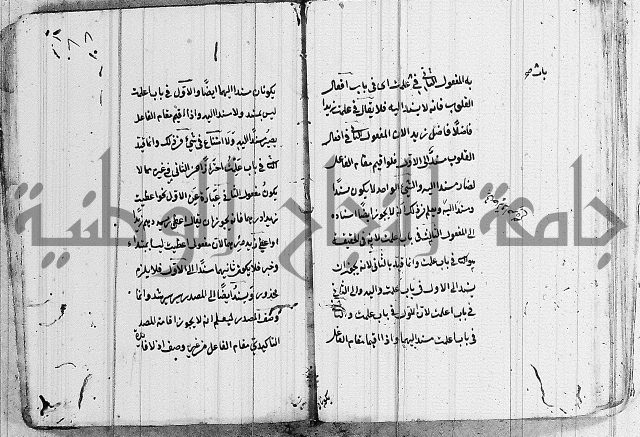 به المفعول الثاني في علمت اى فى باب افعال
القلوب فانه لا يسند اليه فلا يقال في علمت زيدا
فاضلا فاضل زيدا لان المفعول الثاني في افعال
القلوب مسند الى الاول فلو اقيم مقام الفاعل
لصار مسندا اليه والشئ الواحد لا يكون مسندا
ومسندا اليه ويعلم من ذلك انه لا يجوز ايضا اسناده
الى المفعول الثالث في باب علمت لانه في الحقيقة
في باب علمت وانما قيد بالثاني لانه يجوز ان
يسند الى الاول في باب علمت واليه والى الثاني
في باب اعلمت لان الاول في باب علمت والثاني
في باب اعلمت مسند اليهما واذا اقيما مقام الفاعل
يكونان مسندا اليهما ايضا والاول في باب اعلمت
ليس بمسند ولا مسندا اليه واذا اقيم مقام الفاعل
يصير مسندا اليه ولا امتناع في شئ من ذلك وانما قيد
في باب علمت احترازا عن الثاني في غيره مما لا
يكون مفعوله الثاني عبارة عن الاول نحو اعطيت
زيدا درهما فانه يجوز ان يقال اعطى زيد درهما
واعطى زيدا درهم لان مفعولى اعطيت ليسا بمبتدأ
وخبر فلا يكون ثانيهما مسندا الى الاول فلا يلزم
محذور ويسند ايضا الى المصدر وانما
وصف المصدر ليعلم انه لا يجوز اقامة المصدر
التاكيدي مقام الفاعل من غير وصف اذ لا فائدة
جامعة النجاح الوطنية